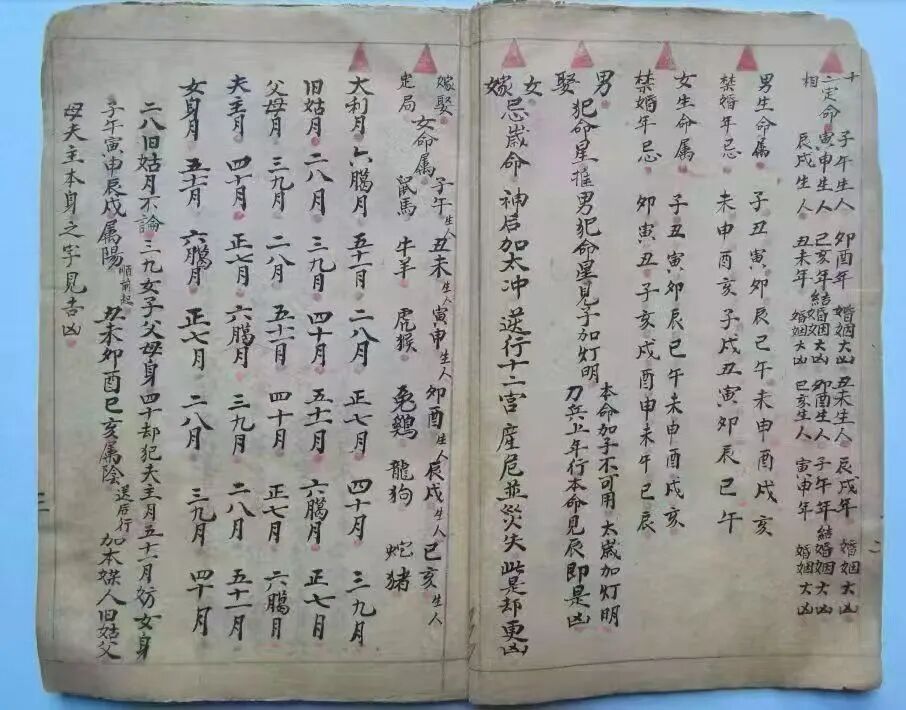 十二定命相
子午生人 卯酉年 婚姻大凶 丑未生人 辰戌年 婚姻大凶
寅申生人 己亥年結婚姻大凶 卯酉生人 子午年 結婚姻大凶
辰戌生人 丑未年 婚姻大凶 巳亥生人 寅申年 婚姻大凶
男生命属 子丑寅卯辰巳午未申酉戌亥
禁婚年忌 未申酉亥子戌丑寅卯辰巳午
女生命属 子丑寅卯辰巳午未申酉戌亥
禁婚年忌 卯寅丑子亥戌酉申未午巳辰
男娶 犯命星推男犯命星見子加灯明 本命加子不可用 太歲加灯明
刀兵上年行本命見辰即是凶
女嫁 忌歲命 神后加太冲 送行十二宫 産危並災失 此是却更凶
二
嫁娶定局 女命属 子午生人 丑未生人 寅申生人 卯酉生人 辰戌生人 巳亥生人
鼠馬 牛羊 虎猴 兔鷄 龍狗 蛇猪
大利月 六臈月 五十一月 二八月 正七月 四十月 三九月
旧姑月 二八月 三九月 四十月 五十一月 六臈月 正七月
父母月 三九月 二八月 五十一月 四十月 正七月 六臈月
夫主月 四十月 正七月 六臈月 三九月 二八月 五十一月
女身月 五十一月 六臈月 正七月 二八月 三九月 四十月
二八旧姑月不論三九女子父母身四十却犯夫主月五十一月妨女身
子午寅申辰戌属陽 順前起 丑未卯酉巳亥属陰 送后行 加本媒人旧姑父
母夫主本身之字見吉凶
三